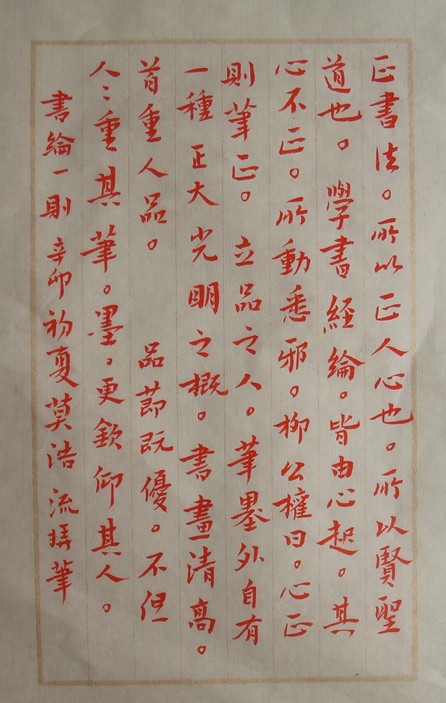 正書法。所以正人心也。所以賢聖
道也。學書經綸。皆由心起。其
心不正。所動悉邪。柳公權曰。心正
則筆正。立品之人。筆墨外自有
一種正大光明之概。書畫清高。
首重人品。品節既優。不但
人〻重其筆。墨。更欽仰其人。
書綸一則 辛卯初夏莫浩流拜筆